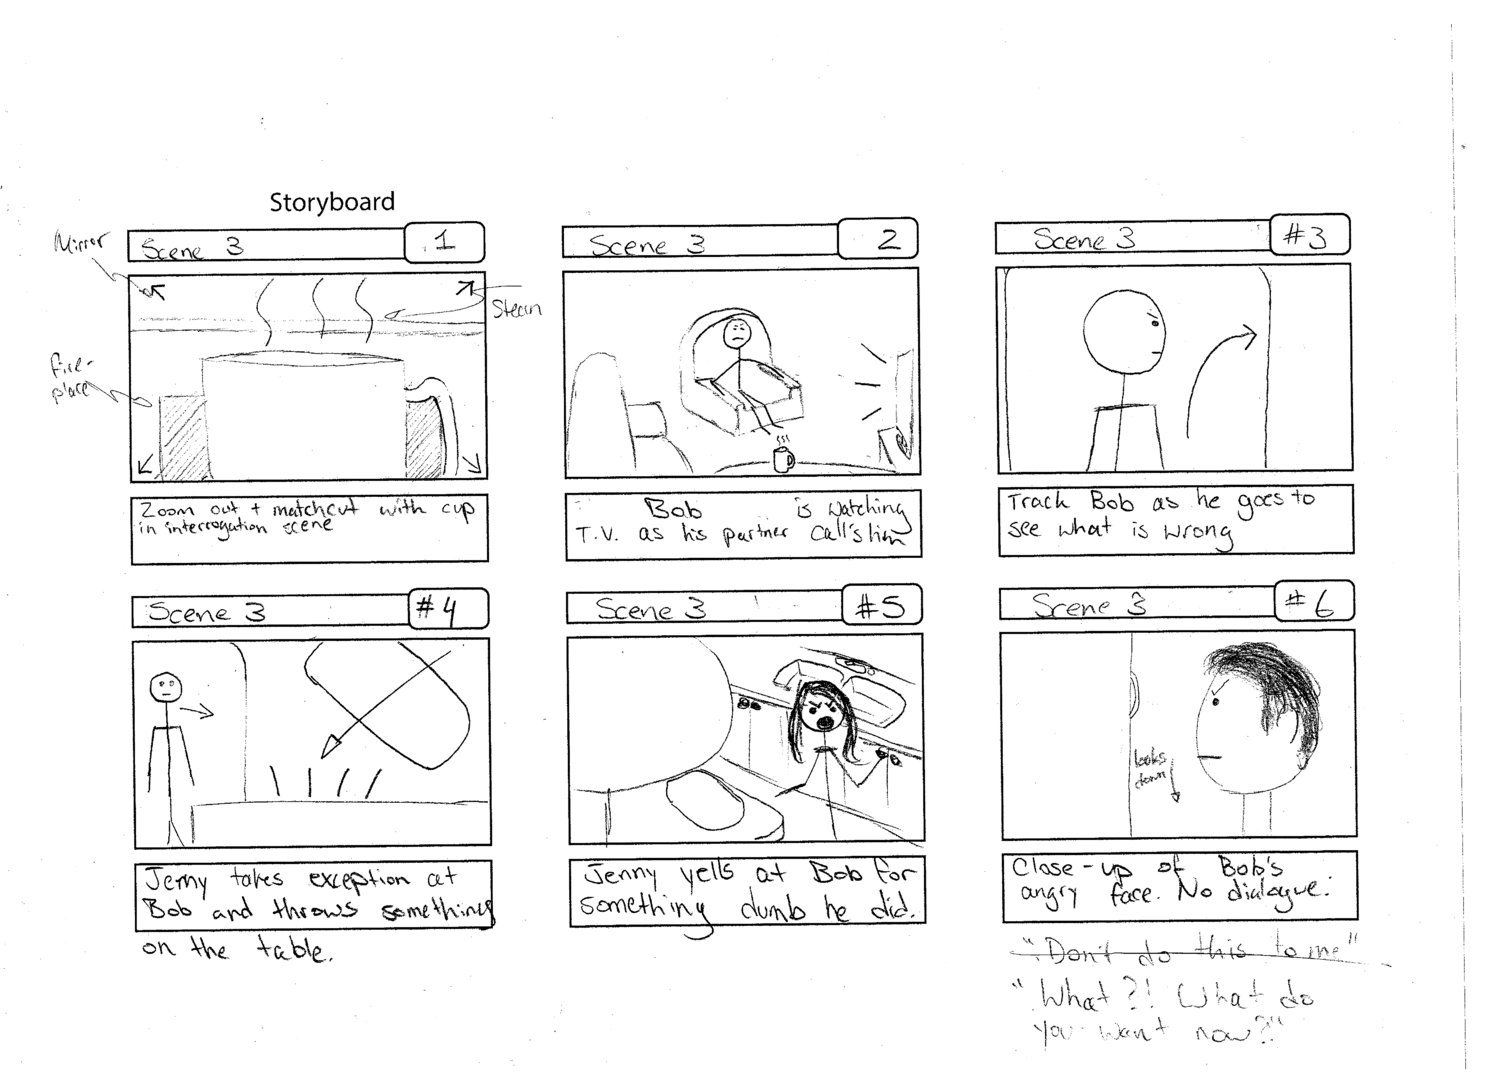 Storyboard
Scene 3
1
Mirror
Steam
fire-
place
Zoom out + matchcut with cup
in interrogation scene
Scene 3
2
Bob is watching
T.V. as his partner Call's him
Scene 3
#3
Track Bob as he goes to
see what is wrong
Scene 3
#4
Jenny takes exception at
Bob and throws something
on the table.
Scene 3
#5
Jenny yells at Bob for
something dumb he did.
Scene 3
#6
looks
down
Close-up of Bob's
angry face. No dialogue.
"Don't do this to me"
"What?! What do
you want now?"